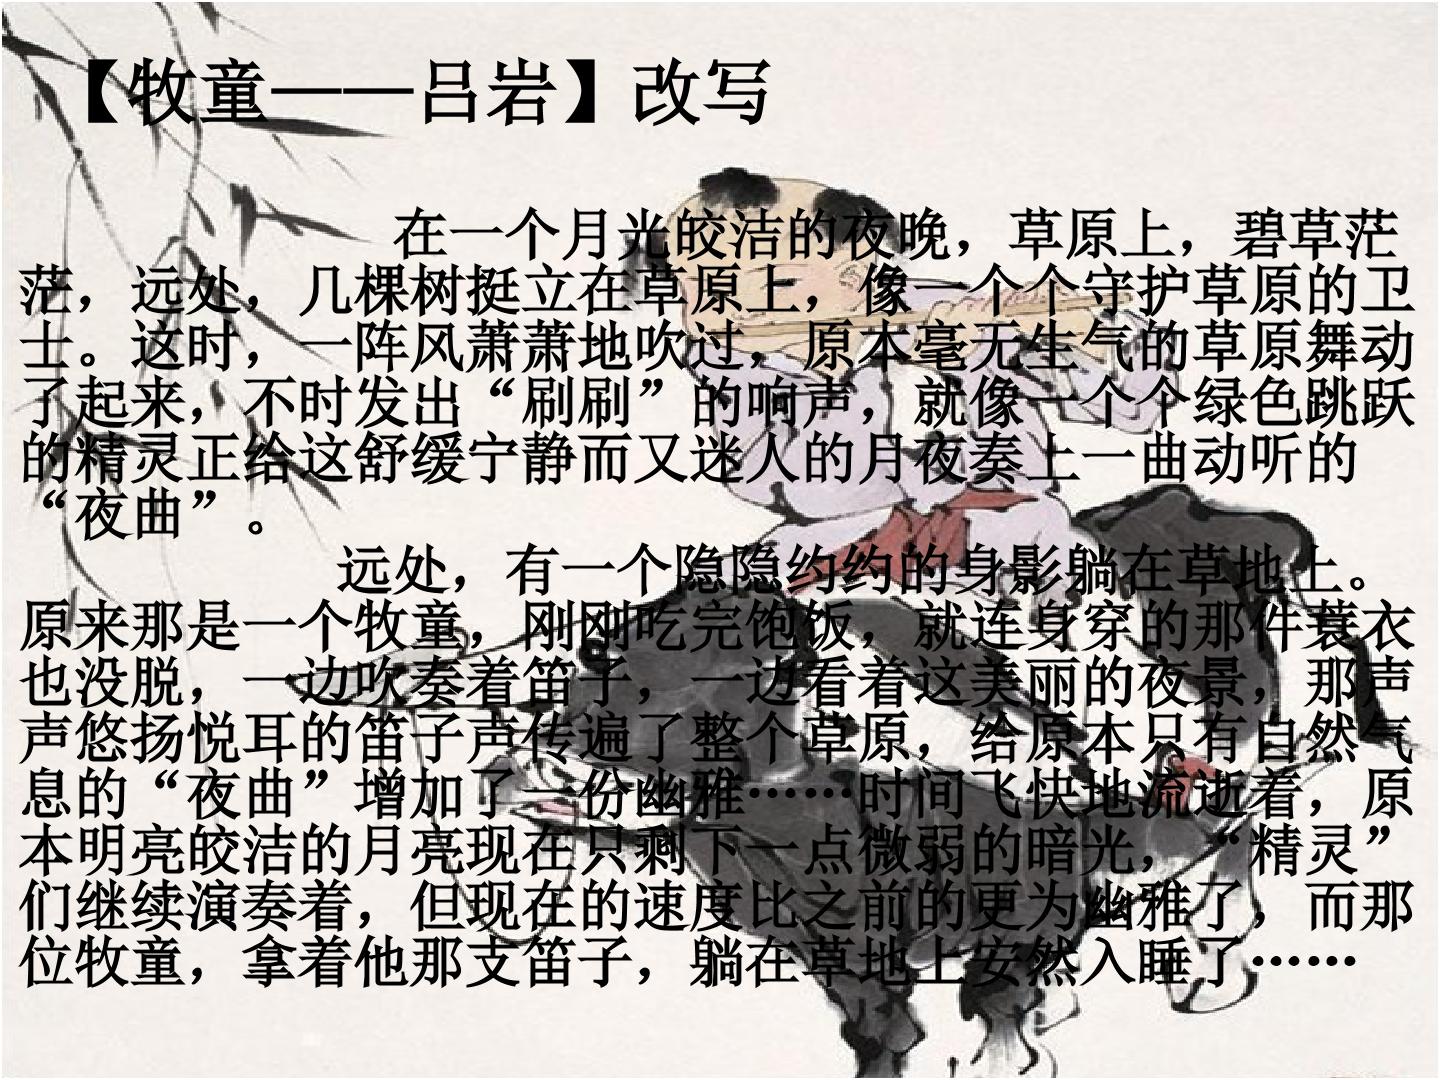 【牧童——吕岩】改写
在一个月光皎洁的夜晚，草原上，碧草茫
茫，远处，几棵树挺立在草原上，像一个个守护草原的卫
士。这时，一阵风萧萧地吹过，原本毫无生气的草原舞动
了起来，不时发出“刷刷”的响声，就像一个个绿色跳跃
的精灵正给这舒缓宁静而又迷人的月夜奏上一曲动听的
“夜曲”。
远处，有一个隐隐约约的身影躺在草地上。
原来那是一个牧童，刚刚吃完饱饭，就连身穿的那件蓑衣
也没脱，一边吹奏着笛子，一边看着这美丽的夜景，那声
声悠扬悦耳的笛子声传遍了整个草原，给原本只有自然气
息的“夜曲”增加了一份幽雅……时间飞快地流逝着，原
本明亮皎洁的月亮现在只剩下一点微弱的暗光，“精灵”
们继续演奏着，但现在的速度比之前的更为幽雅了，而那
位牧童，拿着他那支笛子，躺在草地上安然入睡了……